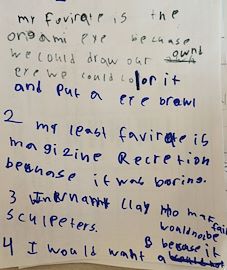 my favirate is the
origami eye because
we could draw our ownd
eye we could color it
and put a eye brawl
2 my least favirate is
magizine Recretion
because it was boring.
3 clay
sculpeters.
4 I would want a B because it